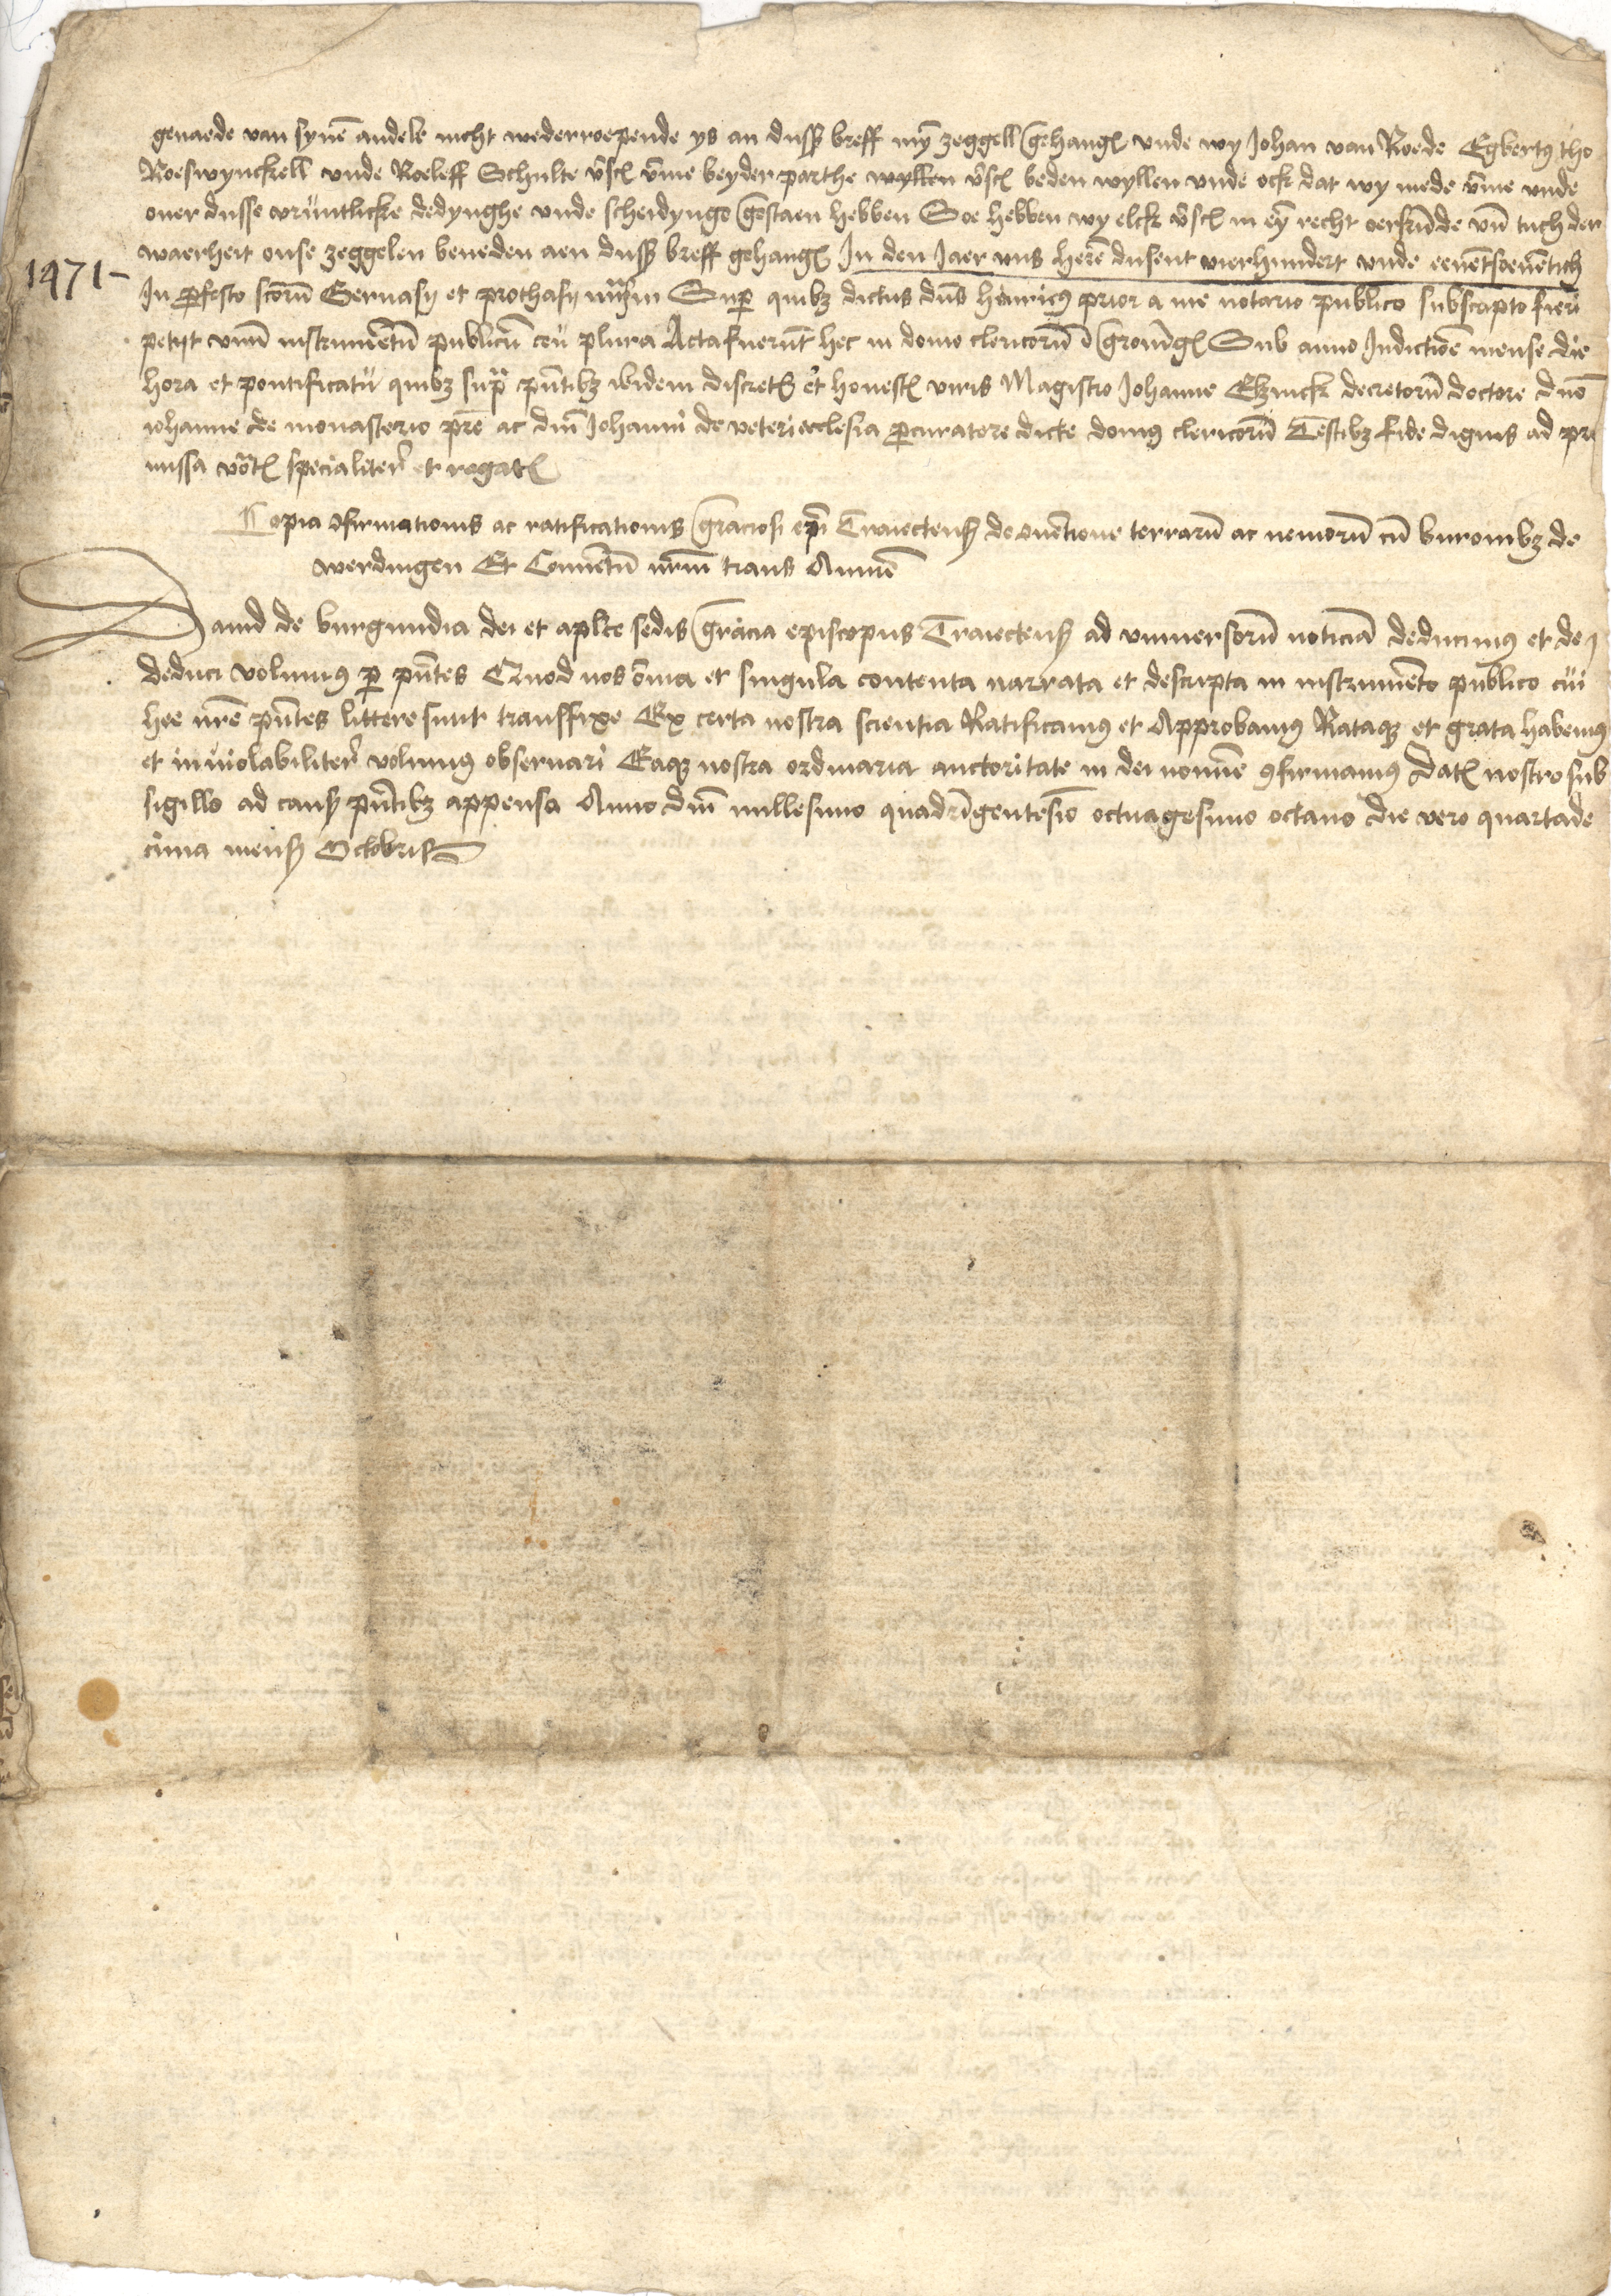 genaede van synē andele nicht wederroepende ys an dussē breff myˉ zeggell gehangē vnde wy Johan van Roede Egbertꝯ tho
Roeswynckell vnde Roeleff Schulte vscˉ vm̄e beyder parthe wyllen vscˉ beden wyllen vnde ock dat wy mede vm̄e vnde
ouer dusse vruntlicke dedynghe vnde scheidynge gestaen hebben Soe hebben wy elck vscˉ in eyˉ recht oerkūde vn̄ tuch der
waerheit onse zeggelen beneden aen dussē breff gehangē In den Jaer vns herē dusent vierhundert vnde eenēt seuētich
1471-
In ꝓfesto sctōrū Geruasij et prothasij mr̄m Suꝑ quibꝫ dictus dn̄s henricꝯ prior a me notario publico subscripto fieri
petijt vnū instrumētū publicū ceu plura Acta fuerūt hec in domo clericorū ī gronīgē Sub anno Indictiōe mense die
hora et pontificatu quibꝫ supra pn̄tibꝫ ibidem discretis et honestis viris Magistro Johanne Elzinck decretorū doctore dn̄o
iohanne de monasterio pr̄e ac dn̄o Johanni de veteri ecclesia ꝓcuratore dicte domꝯ clericorū Testibꝫ fide dignis ad pre
missa vocatis specialiter et rogatis
Copia ꝯfirmationis ac ratificationis graciosi ep̄i Traiectens̄ de ꝯuētione terrarū ac nemorū cū buronibꝫ de
werdingen Et Conuētū nr̄m trans Ammē
Dauid de burgundia dei et aplice sedis gracia episcopus Traiectens̄ ad vniuersorū noticiā deducimꝯ et de
deduci volumꝯ ꝑ pn̄tes Quod nos om̄ia et singula contenta narrata et descripta in instrumēto publico cui
hee nr̄e pn̄tes littere sunt transfixe Ex certa nostra scientia Ratificamꝯ et Approbamꝯ Rataqꝫ et grata habemꝯ
et inuiolabiliter volumꝯ obseruari Eaqꝫ nostra ordinaria auctoritate in dei nomīe ꝯfirmamꝯ Datˉ nostro sub
sigillo ad causˉ pn̄tibꝫ appenso Anno dn̄i millesimo quadrīgentesīo octuagesimo octauo die vero quartade
cima mensˉ Octobris